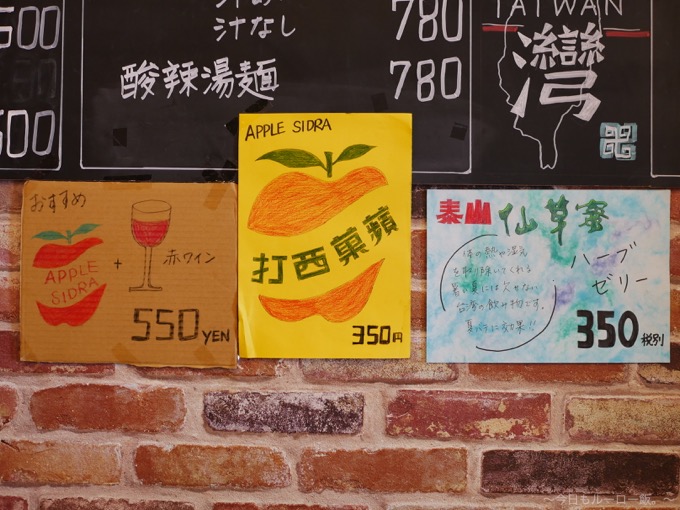 汁なし 780
酸辣湯麺 780
500
500
TAIWAN
灣
おすすめ
APPLE
SIDRA
+
赤ワイン
550 YEN
APPLE SIDRA
打西菓蘋
350円
泰山 仙草蜜
体の熱や湿気
を取り除いてくれる
台湾の飲み物です。
ハーブ
ゼリー
350 税別
～今日もルーロー飯。～